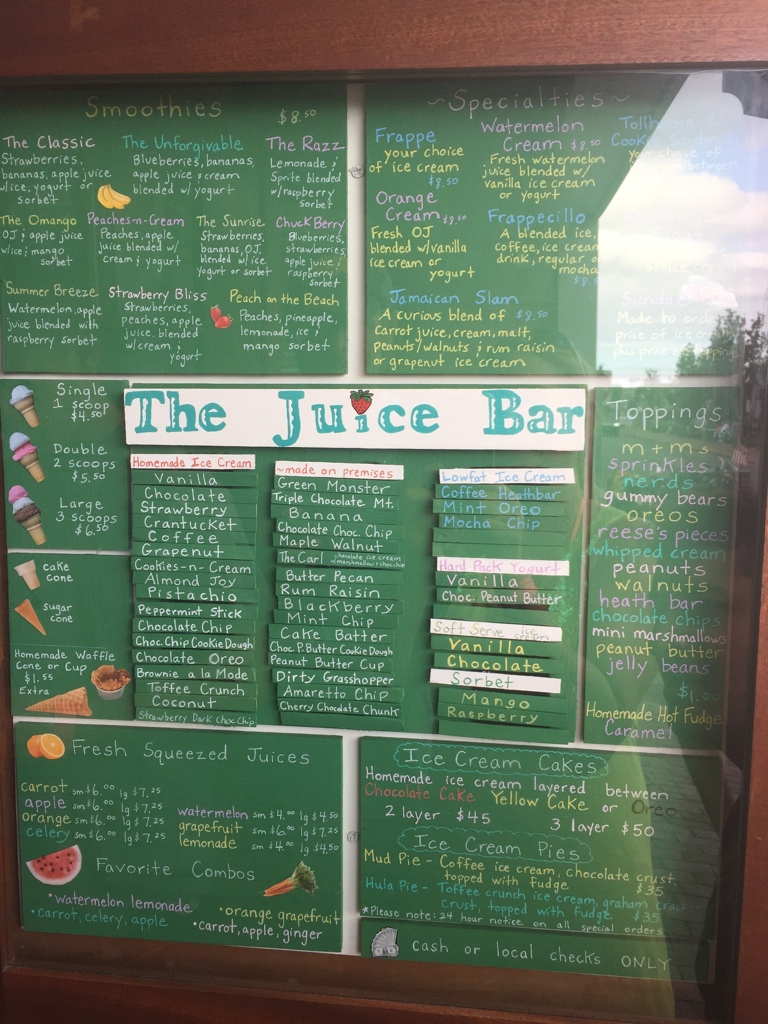 Smoothies $8.50
The Classic
Strawberries,
bananas, apple juice
w/ice, yogurt or
sorbet
The Unforgivable
Blueberries, bananas,
apple juice & cream
blended w/ yogurt
The Razz
Lemonade &
Sprite blended
w/raspberry
sorbet
The Omango
OJ & apple juice
w/ice & mango
sorbet
Peaches-n-Cream
Peaches, apple
juice blended w/
cream & yogurt
The Sunrise
Strawberries,
bananas, OJ,
blended w/ice
yogurt or sorbet
Chuck Berry
Blueberries,
strawberries,
apple juice &
raspberry
sorbet
Summer Breeze
Watermelon, apple
juice blended with
raspberry sorbet
Strawberry Bliss
Strawberries,
peaches, apple
juice, blended
w/cream &
yogurt
Peach on the Beach
Peaches, pineapple,
lemonade, ice &
mango sorbet
~Specialties~
Frappe
your choice
of ice cream
$8.50
Watermelon
Cream $8.50
Fresh watermelon
juice blended w/
vanilla ice cream
or yogurt
Tollhouse
Cookie
your choice of
between
Orange
Cream $8.50
Fresh OJ
blended w/vanilla
ice cream or
yogurt
Frappecillo
A blended ice,
coffee, ice cream
drink, regular or
mocha
Jamaican Slam
A curious blend of $8.50
Carrot juice, cream, malt,
peanuts/walnuts & rum raisin
or grapenut ice cream
Sundae
Made to order
price of ice cream
plus price of topping
Single
1 scoop
$4.50
Double
2 scoops
$5.50
Large
3 scoops
$6.50
cake
cone
sugar
cone
Homemade Waffle
Cone or Cup
$1.55
Extra
The Juice Bar
Homemade Ice Cream
Vanilla
Chocolate
Strawberry
Crantucket
Coffee
Grapenut
Cookies-n-Cream
Almond Joy
Pistachio
Peppermint Stick
Chocolate Chip
Choc. Chip Cookie Dough
Chocolate Oreo
Brownie a la Mode
Toffee Crunch
Coconut
Strawberry Dark Choc Chip
~made on premises
Green Monster
Triple Chocolate Mt.
Banana
Chocolate Choc. Chip
Maple Walnut
The Carl chocolate ice cream w/marshmallow + choc chip
Butter Pecan
Rum Raisin
Blackberry
Mint Chip
Cake Batter
Choc. P. Butter Cookie Dough
Peanut Butter Cup
Dirty Grasshopper
Amaretto Chip
Cherry Chocolate Chunk
Lowfat Ice Cream
Coffee Heathbar
Mint Oreo
Mocha Chip
Hard Pack Yogurt
Vanilla
Choc. Peanut Butter
Soft Serve ice cream
Vanilla
Chocolate
Sorbet
Mango
Raspberry
Toppings
m + m s
sprinkles
nerds
gummy bears
oreos
reese's pieces
whipped cream
peanuts
walnuts
heath bar
chocolate chips
mini marshmallows
peanut butter
jelly beans
$1.00
Homemade Hot Fudge
Caramel
Fresh Squeezed Juices
carrot sm $6.00 lg $7.25
apple sm $6.00 lg $7.25
orange sm $6.00 lg $7.25
celery sm $6.00 lg $7.25
watermelon sm $4.00 lg $4.50
grapefruit sm $6.00 lg $7.25
lemonade sm $4.00 lg $4.50
Favorite Combos
•watermelon lemonade
•carrot, celery, apple
•orange grapefruit
•carrot, apple, ginger
Ice Cream Cakes
Homemade ice cream layered between
Chocolate Cake Yellow Cake or Oreo
2 layer $45 3 layer $50
Ice Cream Pies
Mud Pie - Coffee ice cream, chocolate crust
topped with fudge $35
Hula Pie - Toffee crunch ice cream, graham
crust, topped with fudge $35
*Please note: 24 hour notice on all special orders
cash or local checks ONLY